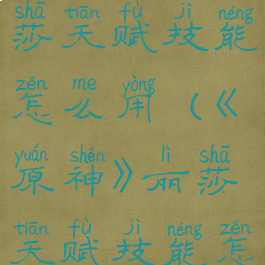 shā tiān fù jì néng
莎天赋技能
zěn me yòng
怎么用(《
yuán shén lì shā
原神》丽莎
tiān fù jì néng zěn
天赋技能怎